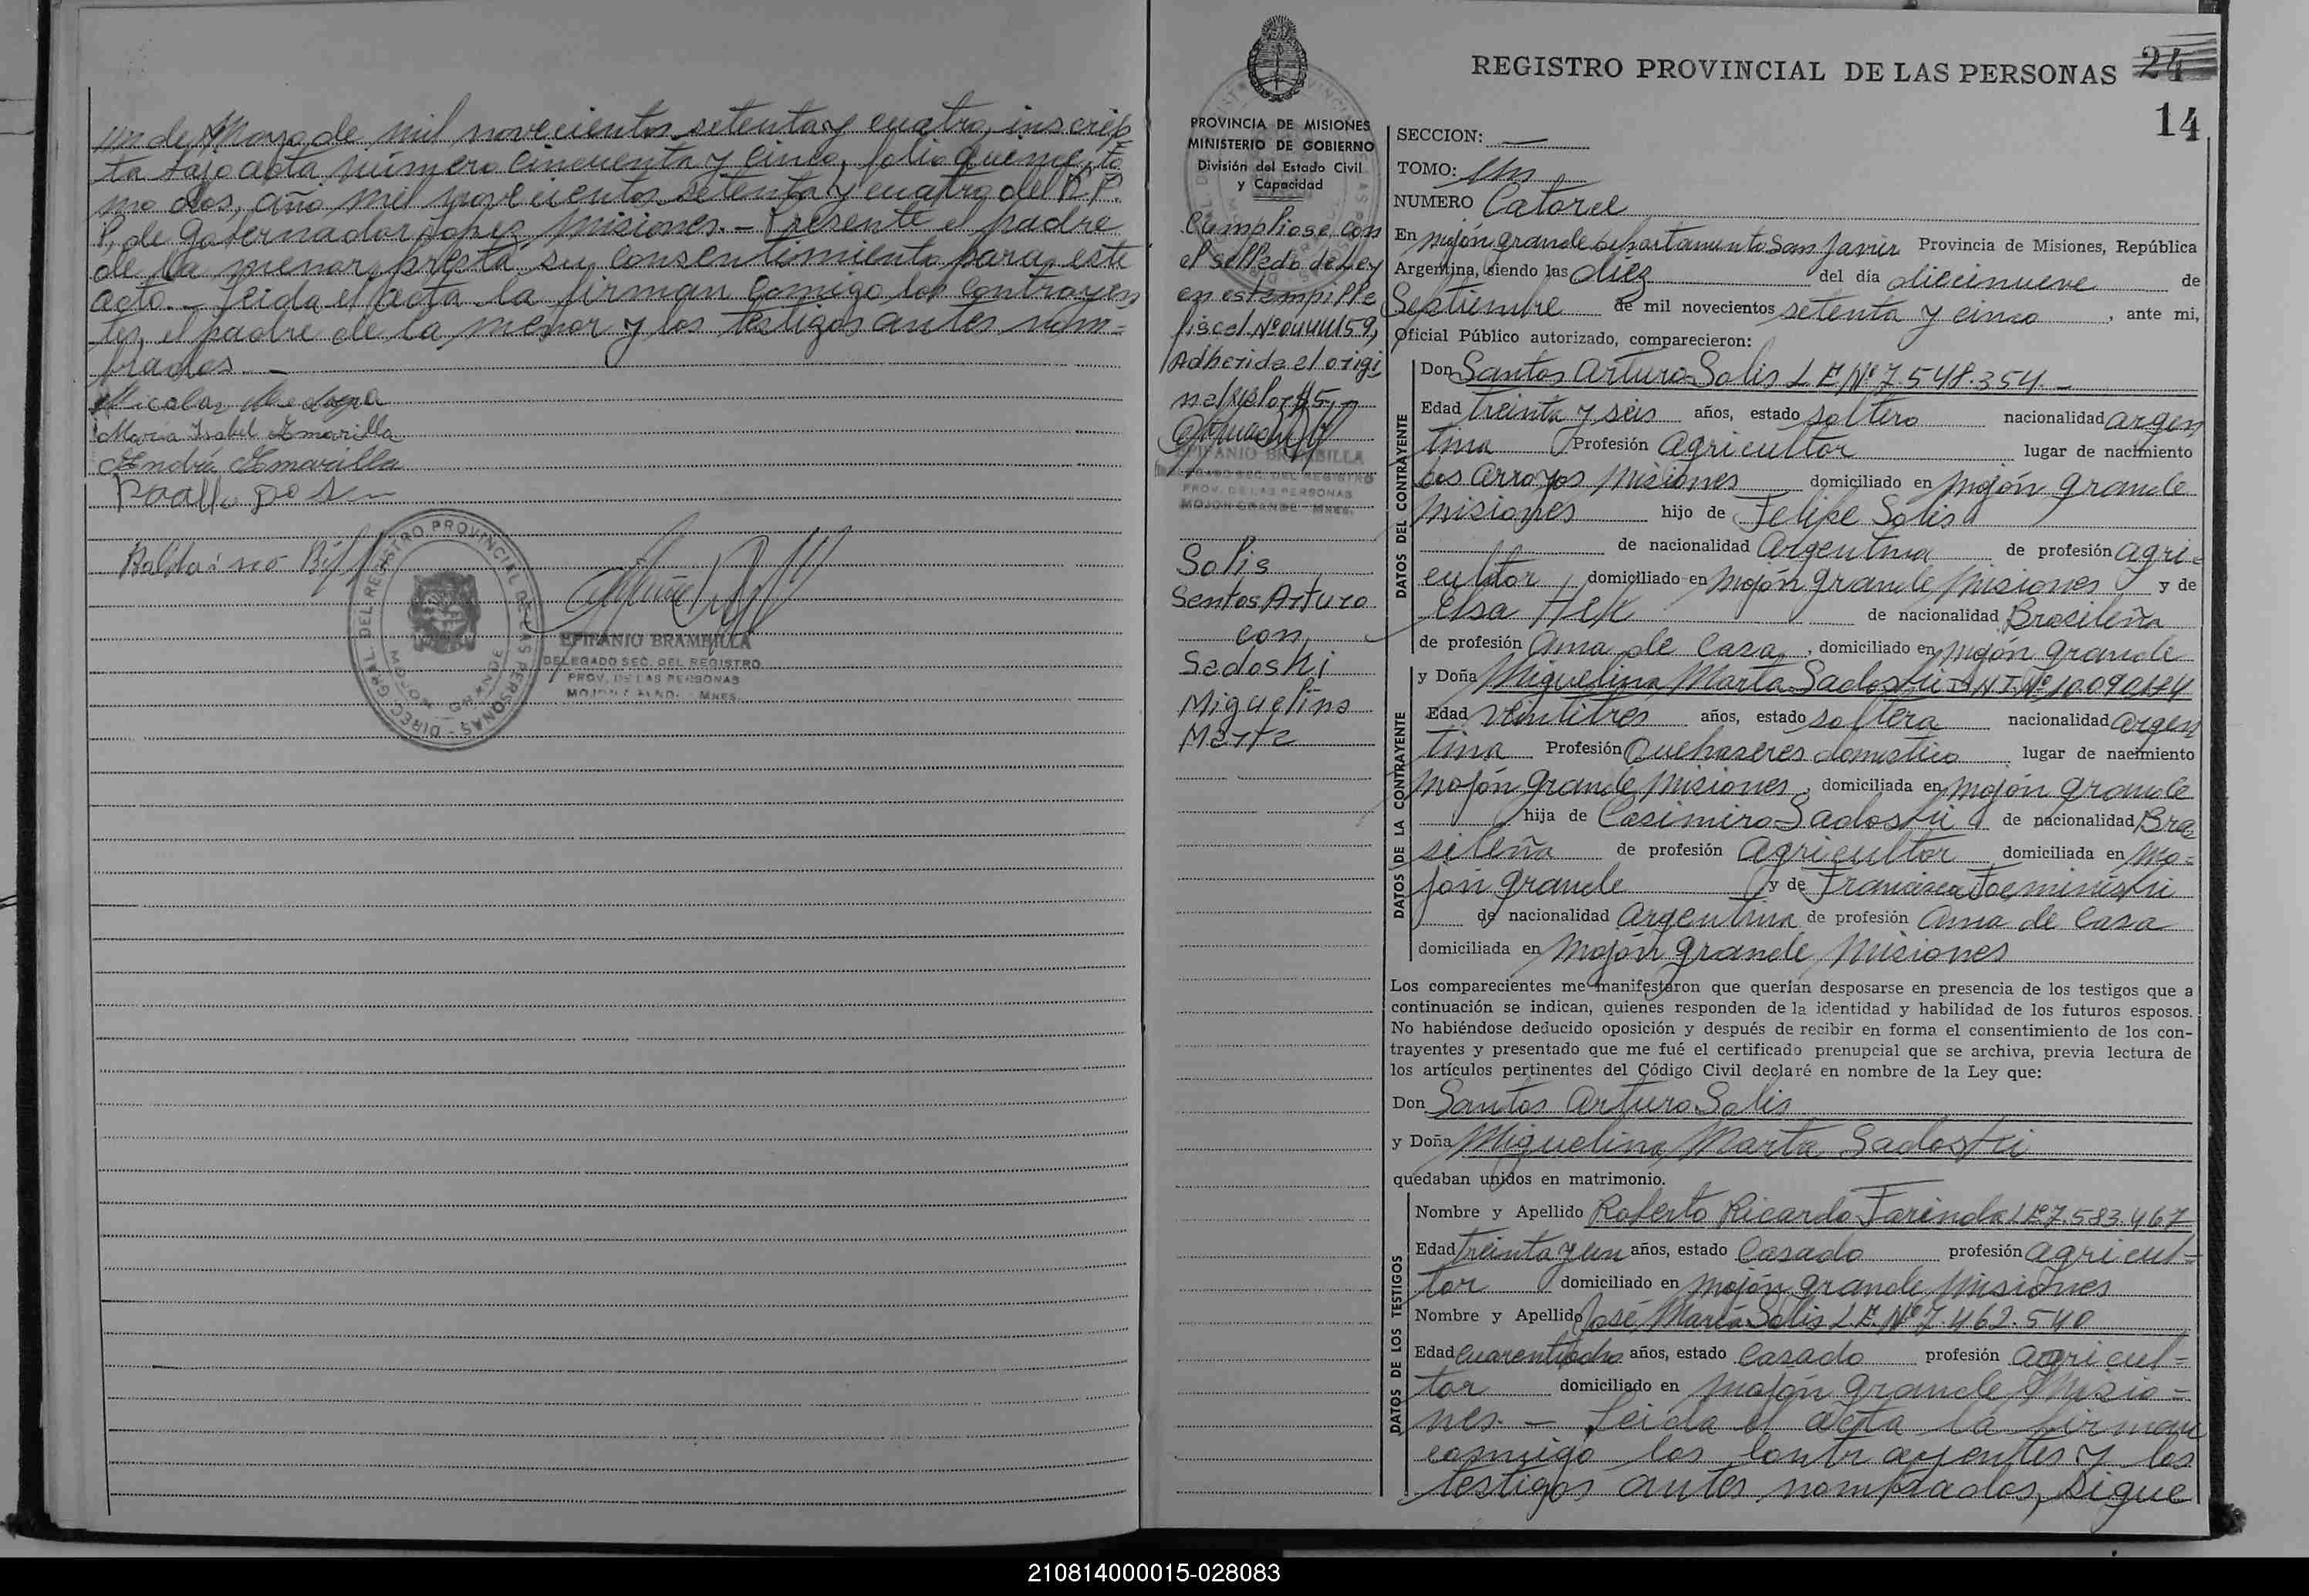 un de Mayo de mil novecientos setenta y cuatro, inscrip
ta bajo acta número cincuenta y cinco, folio
mo dos, año mil novecientos setenta y cuatro del R.P.
P, de Gobernador Lopez Misiones. - Presente el padre
de la menor, presta su consentimiento para este
acto. - Leida el acta la firman comigo los contrayen
tes, el padre de la menor y los testigos antes nom-
brados. -
Nicolas
Maria Isabel Amarilla
Amarilla
DIREC. GRAL. DEL REGISTRO PROVINCIAL DE LAS PERSONAS
MOJON GRANDE
EPIFANIO BRAMBILLA
DELEGADO SEC. DEL REGISTRO
PROV. DE LAS PERSONAS
MOJON GRAND. - MNES.
REGISTRO PROVINCIAL DE LAS PERSONAS 24
14
PROVINCIA DE MISIONES
MINISTERIO DE GOBIERNO
División del Estado Civil
y Capacidad
Cumpliose con
el selledo de Ley
en estampille
fiscel Nº 0444159,
Adheride el origi
nel, por \$5-
EPIFANIO BRAMBILLA
DELEGADO SEC. DEL REGISTRO
PROV. DE LAS PERSONAS
MOJON GRANDE - MNES.
Solis
Sentos Arturo
con
Sadoski
Miguelina
Marta
SECCION: —
TOMO: Un
NUMERO Catorce
En Mojón grande departamento San Javier Provincia de Misiones, República
Argentina, siendo las diez del día diecinueve de
Septiembre de mil novecientos setenta y cinco, ante mi,
Oficial Público autorizado, comparecieron:
DATOS DEL CONTRAYENTE
Don Santos Arturo Solis L.E. Nº 7.548.354. -
Edad treinta y seis años, estado soltero nacionalidad argen
tina Profesión agricultor lugar de nacimiento
Dos Arroyos Misiones domiciliado en Mojón grande
Misiones hijo de Felipe Solis
de nacionalidad Argentina de profesión agri-
cultor, domiciliado en Mojón grande Misiones y de
Elsa de nacionalidad Brasileña
de profesión Ama de Casa, domiciliado en Mojón grande
DATOS DE LA CONTRAYENTE
y Doña Miguelina Marta Sadoski D.N.I. Nº 10090174
Edad veintitres años, estado soltera nacionalidad argen
tina Profesión Quehaseres domestico lugar de nacimiento
Mojón grande Misiones, domiciliada en Mojón grande
hija de Casimiro Sadoski de nacionalidad Bra
sileña de profesión Agricultor domiciliada en Mo-
jón grande y de Francisca
de nacionalidad Argentina de profesión Ama de Casa
domiciliada en Mojón grande, Misiones
Los comparecientes me manifestaron que querían desposarse en presencia de los testigos que a
continuación se indican, quienes responden de la identidad y habilidad de los futuros esposos.
No habiéndose deducido oposición y después de recibir en forma el consentimiento de los con-
trayentes y presentado que me fué el certificado prenupcial que se archiva, previa lectura de
los artículos pertinentes del Código Civil declaré en nombre de la Ley que:
Don Santos Arturo Solis
y Doña Miguelina Marta Sadoski
quedaban unidos en matrimonio.
DATOS DE LOS TESTIGOS
Nombre y Apellido Roberto Ricardo Farinola L.E. 7.583.467
Edad treinta y un años, estado Casado profesión agricul-
tor domiciliado en Mojón grande, Misiones
Nombre y Apellido José María Solis L.E. Nº 7.462.540
Edad cuarentiocho años, estado Casado profesión agricul-
tor domiciliado en Mojón grande Misio-
nes. - Leida el acta la firman
comigo los contrayentes y los
testigos antes nombrados, sigue
210814000015-028083